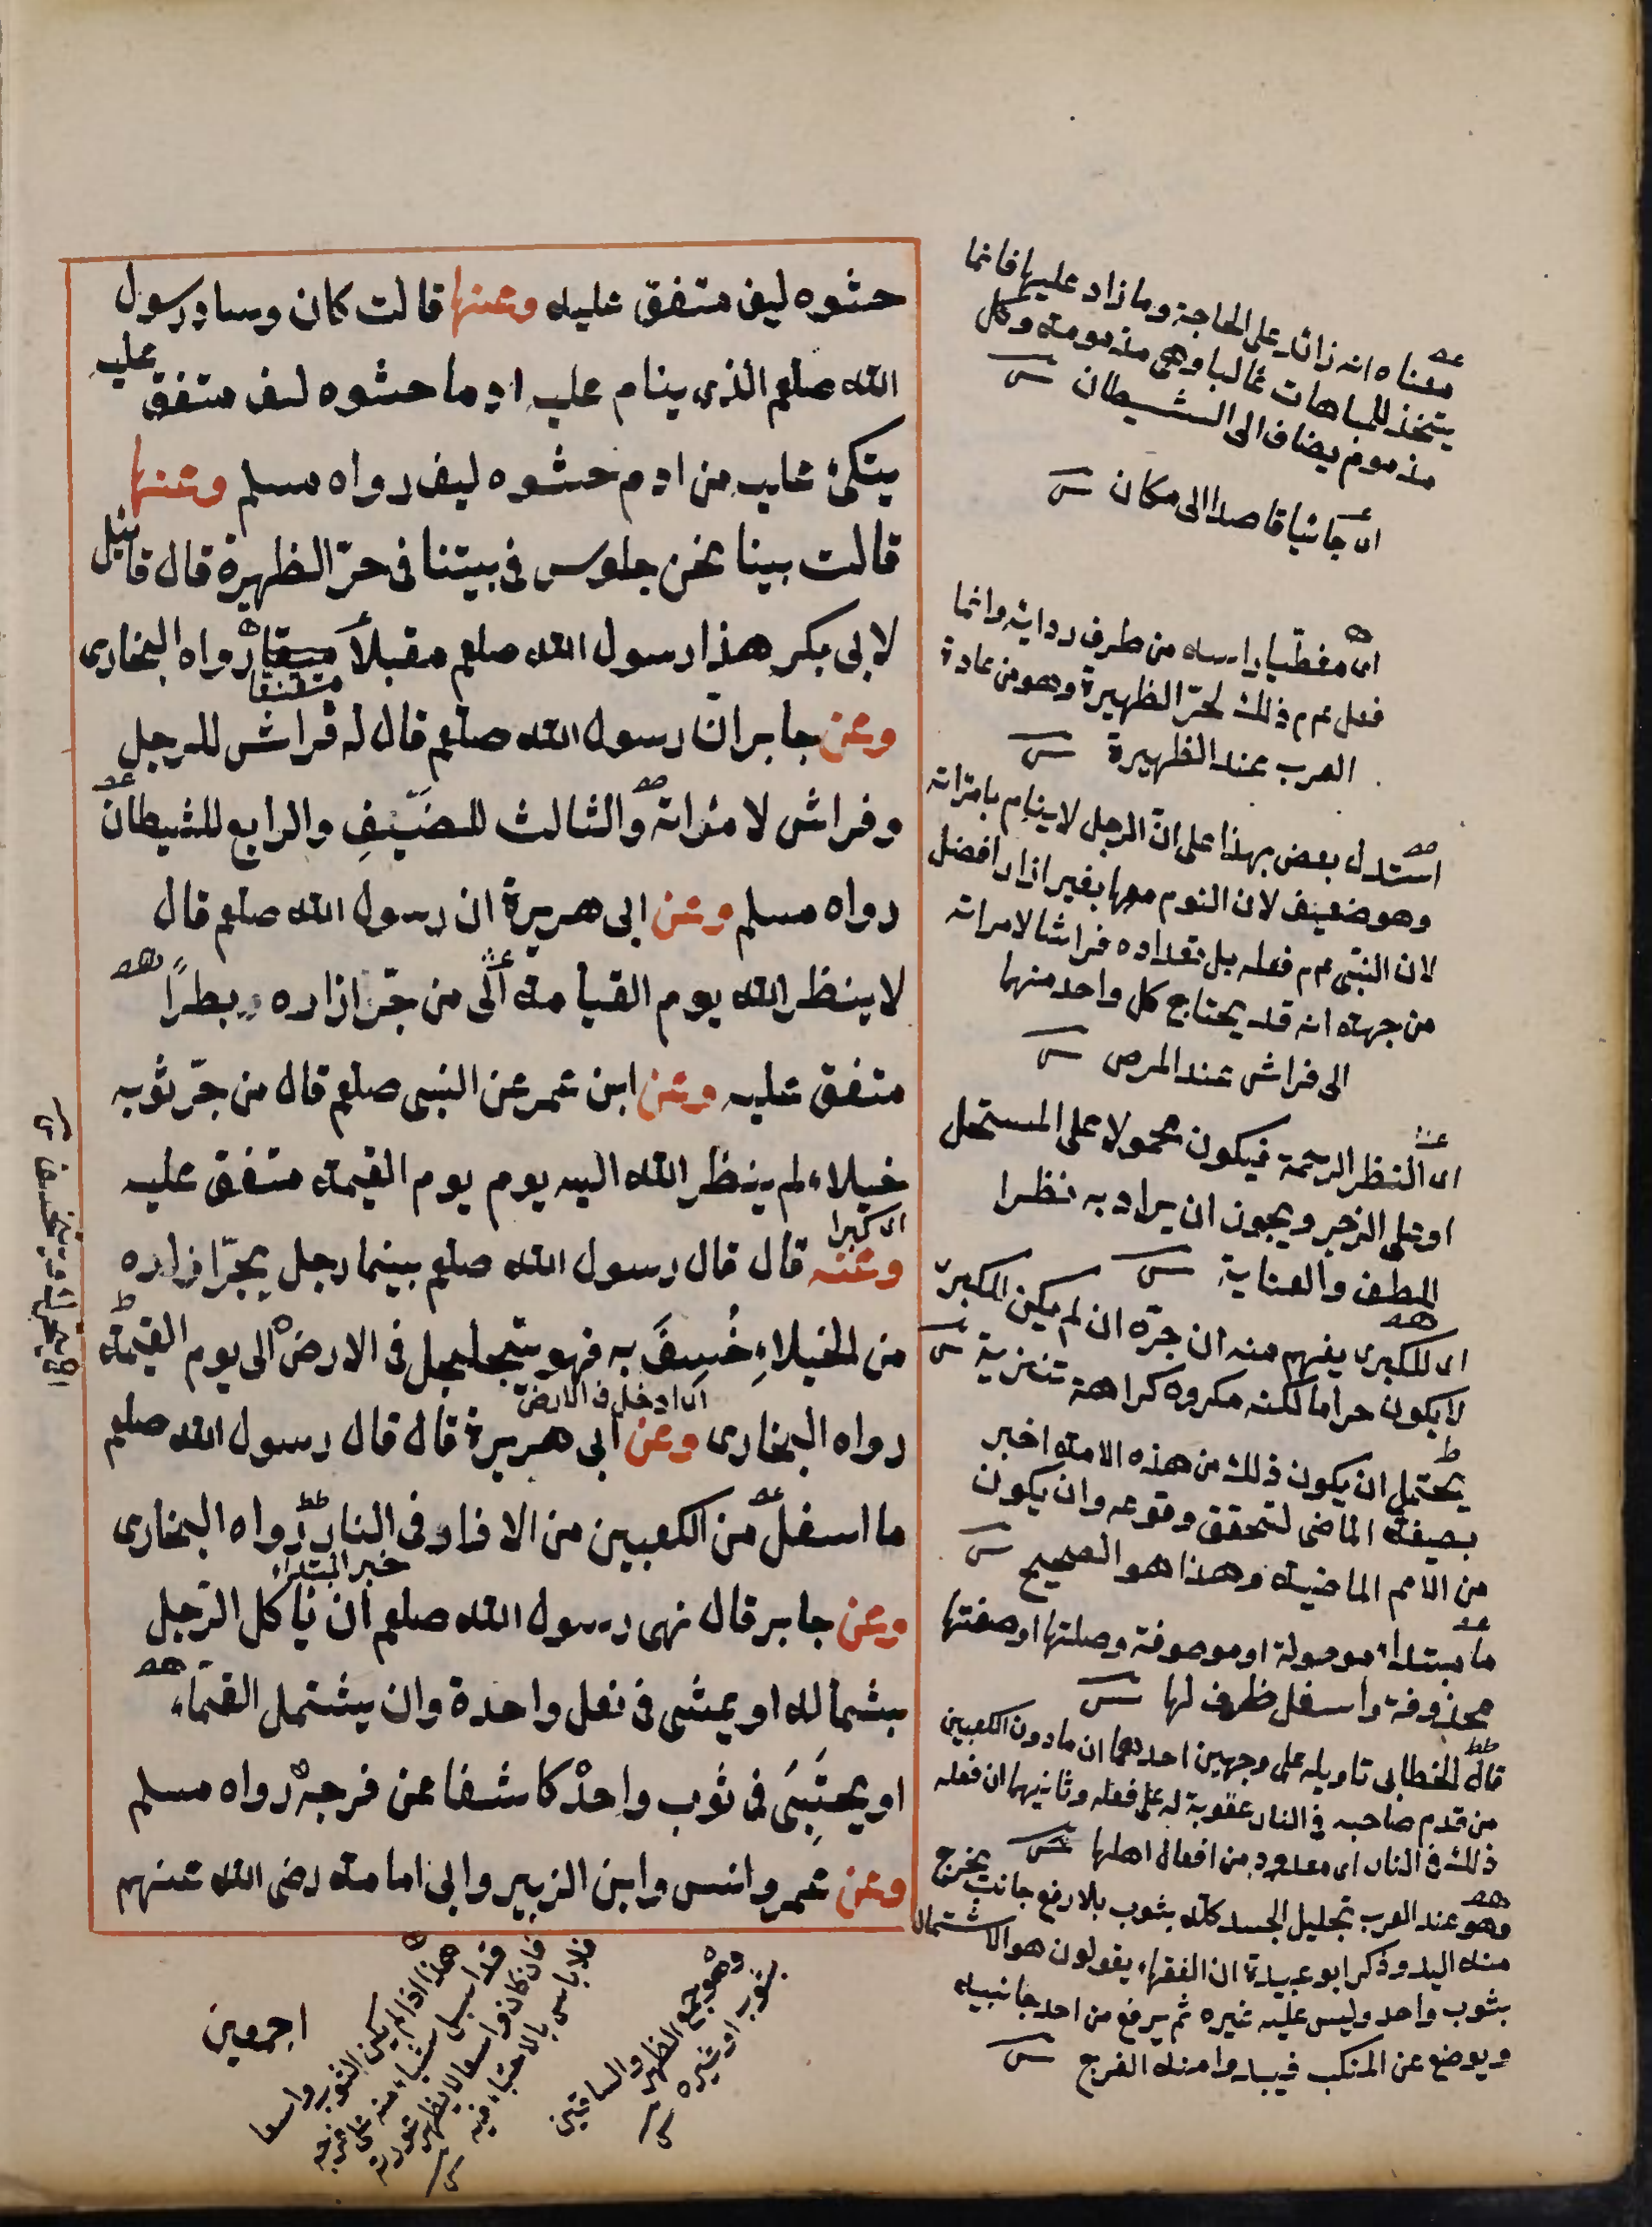 حشوه ليف متفق عليه وعنها قالت كان وساد رسول
الله صلعم الذي ينام عليه ادما حشوه ليف متفق عليه
يتكئ عليه من ادم حشوه ليف رواه مسلم وعنها
قالت بينا نحن جلوس في بيتنا في حرّ الظهيرة قال قائل
لابي بكر هذا رسول الله صلعم مقبلاً رواه البخاري
متقنعا
وعن جابر ان رسول الله صلعم قال له فراش للرجل
وفراش لامراته والثالث للضيف والرابع للشيطان
رواه مسلم وعن ابي هريرة ان رسول الله صلعم قال
لا ينظر الله يوم القيامة الى من جرّ ازاره بطراً
متفق عليه وعن ابن عمر عن النبي صلعم قال من جرّ ثوبه
خيلاء لم ينظر الله اليه يوم يوم القيمة متفق عليه
اى كبرا
وعنه قال قال رسول الله صلعم بينما رجل يجرّ ازاره
من الخيلاءِ خُسِفَ به فهو يتجلجل في الارض الى يوم القيمة
اى ادخل في الارض
رواه البخاري وعن ابي هريرة قال قال رسول الله صلعم
ما اسفل من الكعبين من الازار في النار رواه البخاري
خبر المبتداء
وعن جابر قال نهى رسول الله صلعم ان يأكل الرّجل
بشماله او يمشي في نعل واحدة وان يشتمل الصّمّاء
او يحتبي في ثوب واحد كاشفا عن فرجه رواه مسلم
وعن عمر وانس وابن الزبير وابي امامة رضى الله عنهم
اجمعين
معناه انه زائد على الحاجة وما زاد عليها فانما
يتخذ للمباهات غالبا وهى مذمومة وكل
مذموم يضاف الى الشيطان
اى جائيا قاصدا الى مكان
اى مغطيا راسه من طرف ردائه وانما
فعل عم م ذلك لحرّ الظهيرة وهو من عادة
العرب عند الظهيرة
استدل بعض بهذا على انّ الرجل لا ينام بامراته
وهو ضعيف لان النوم معها بغير ازار افضل
لان النبى عم م فعله بل تعداده فراشا لامراته
من جهة انه قد يحتاج كل واحد منهما
الى فراش عند المرض
اى النظر الرحمة فيكون محمولا على المستحل
او على الزجر ويجوز ان يراد به نظرا
للطف والعناية
اى للكبرى يفهم منه ان جرّه ان لم يكن للكبر
لا يكون حراما لكنه مكروه كراهة تنزيه
يحتمل ان يكون ذلك من هذه الامة اخبر
بصيغة الماضى لتحقق وقوعه وان يكون
من الامم الماضية وهذا هو الصحيح
ما مبتداء موصولة او موصوفة وصلتها او صفتها
محذوفة واسفل ظرف لها
قال الخطابى تاويله على وجهين احدهما ان ما دون الكعبين
من قدم صاحبه في النار عقوبة له على فعله وثانيهما ان فعله
ذلك في النار اى معدود من افعال اهلها
وهو عند العرب تجليل الجسد كله بثوب بلا رفع جانب يخرج
منه اليد وذكر ابو عبيدة ان الفقهاء يقولون هو الاشتمال
بثوب واحد وليس عليه غيره ثم يرفع من احد جانبيه
ويوضع عن المنكب فيبدوا منه الفرج
وهو جمع الظهر والساقين
بثوب او غيره
هذا اذا لم يكن الثوب واسعا
قد اسبل شيئا منه على فرجه
فان كان واسعا لا يظهر عورته
فلا باس بالاحتباء فيه